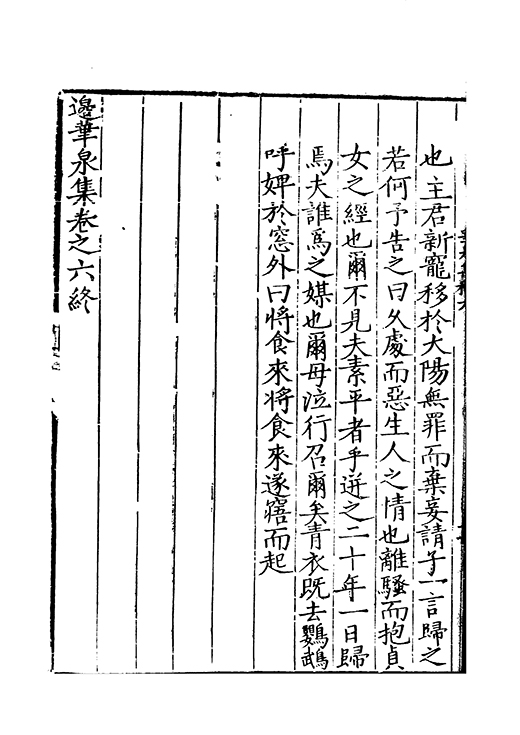 也主君新寵移於大陽無罪而棄妾請子一言歸之
若何予告之曰久處而惡生人之情也離騷而抱貞
女之經也爾不見夫素平者乎迸之二十年一日歸
焉夫誰爲之媒也爾母泣行召爾矣青衣既去鸚鵡
呼婢於窓外曰將食來將食來遂寤而起
邊華泉集卷之六終